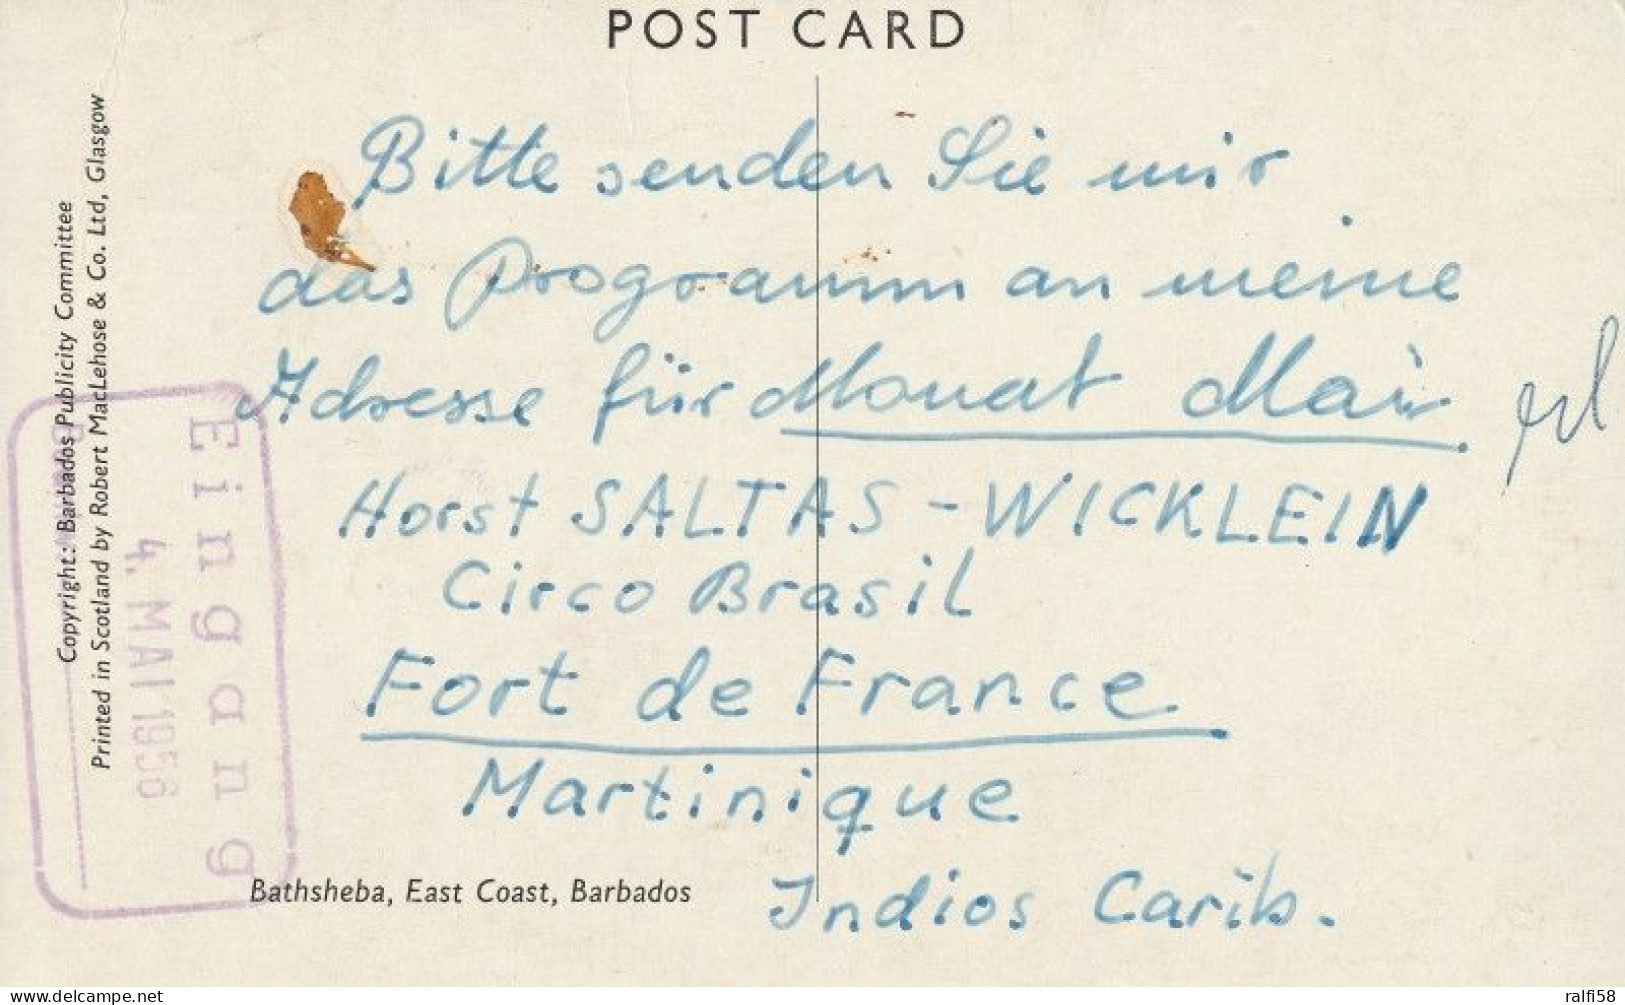 POST CARD
Bitte senden Sie mir
das Programm an meine
Adresse für Monat Mai.
Horst SALTAS - WICKLEIN
Circo Brasil
Fort de France
Martinique
Indios Carib.
Bathsheba, East Coast, Barbados
Copyright: Barbados Publicity Committee
Printed in Scotland by Robert MacLehose & Co. Ltd, Glasgow
Eingang
4. MAI 1956
delcampe.net
ralfi58